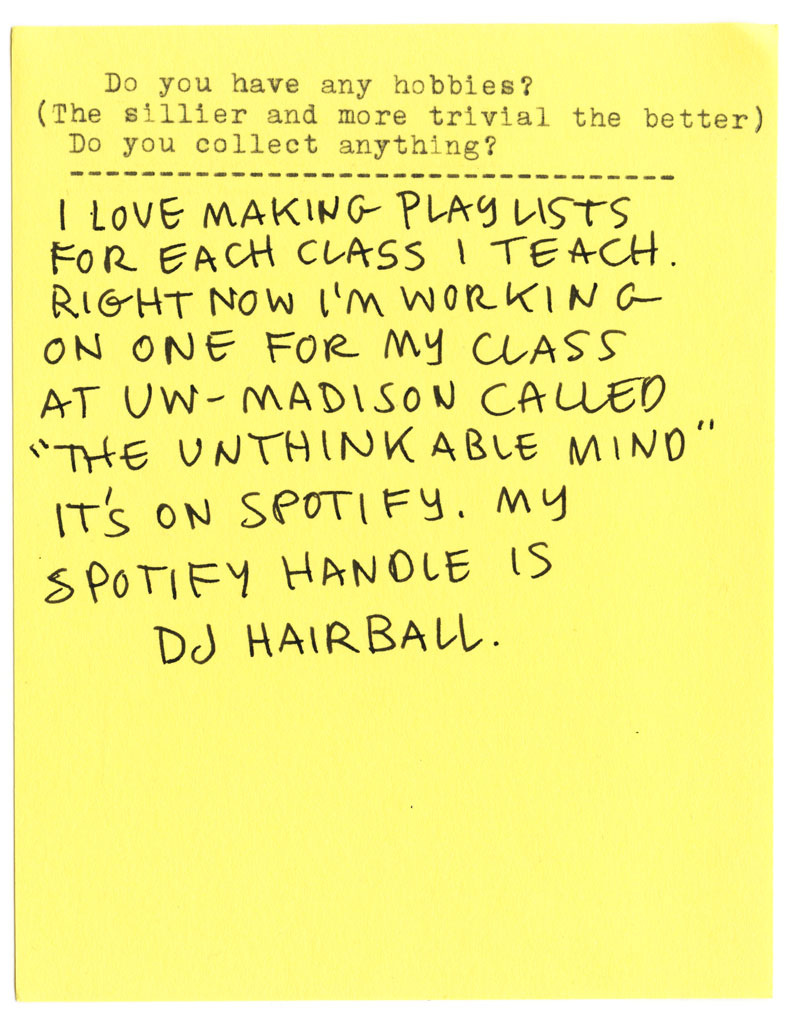 Do you have any hobbies?
(The sillier and more trivial the better)
Do you collect anything?
---------------------------------
I LOVE MAKING PLAYLISTS
FOR EACH CLASS I TEACH.
RIGHT NOW I'M WORKING
ON ONE FOR MY CLASS
AT UW-MADISON CALLED
"THE UNTHINKABLE MIND"
IT'S ON SPOTIFY. MY
SPOTIFY HANDLE IS
DJ HAIRBALL.